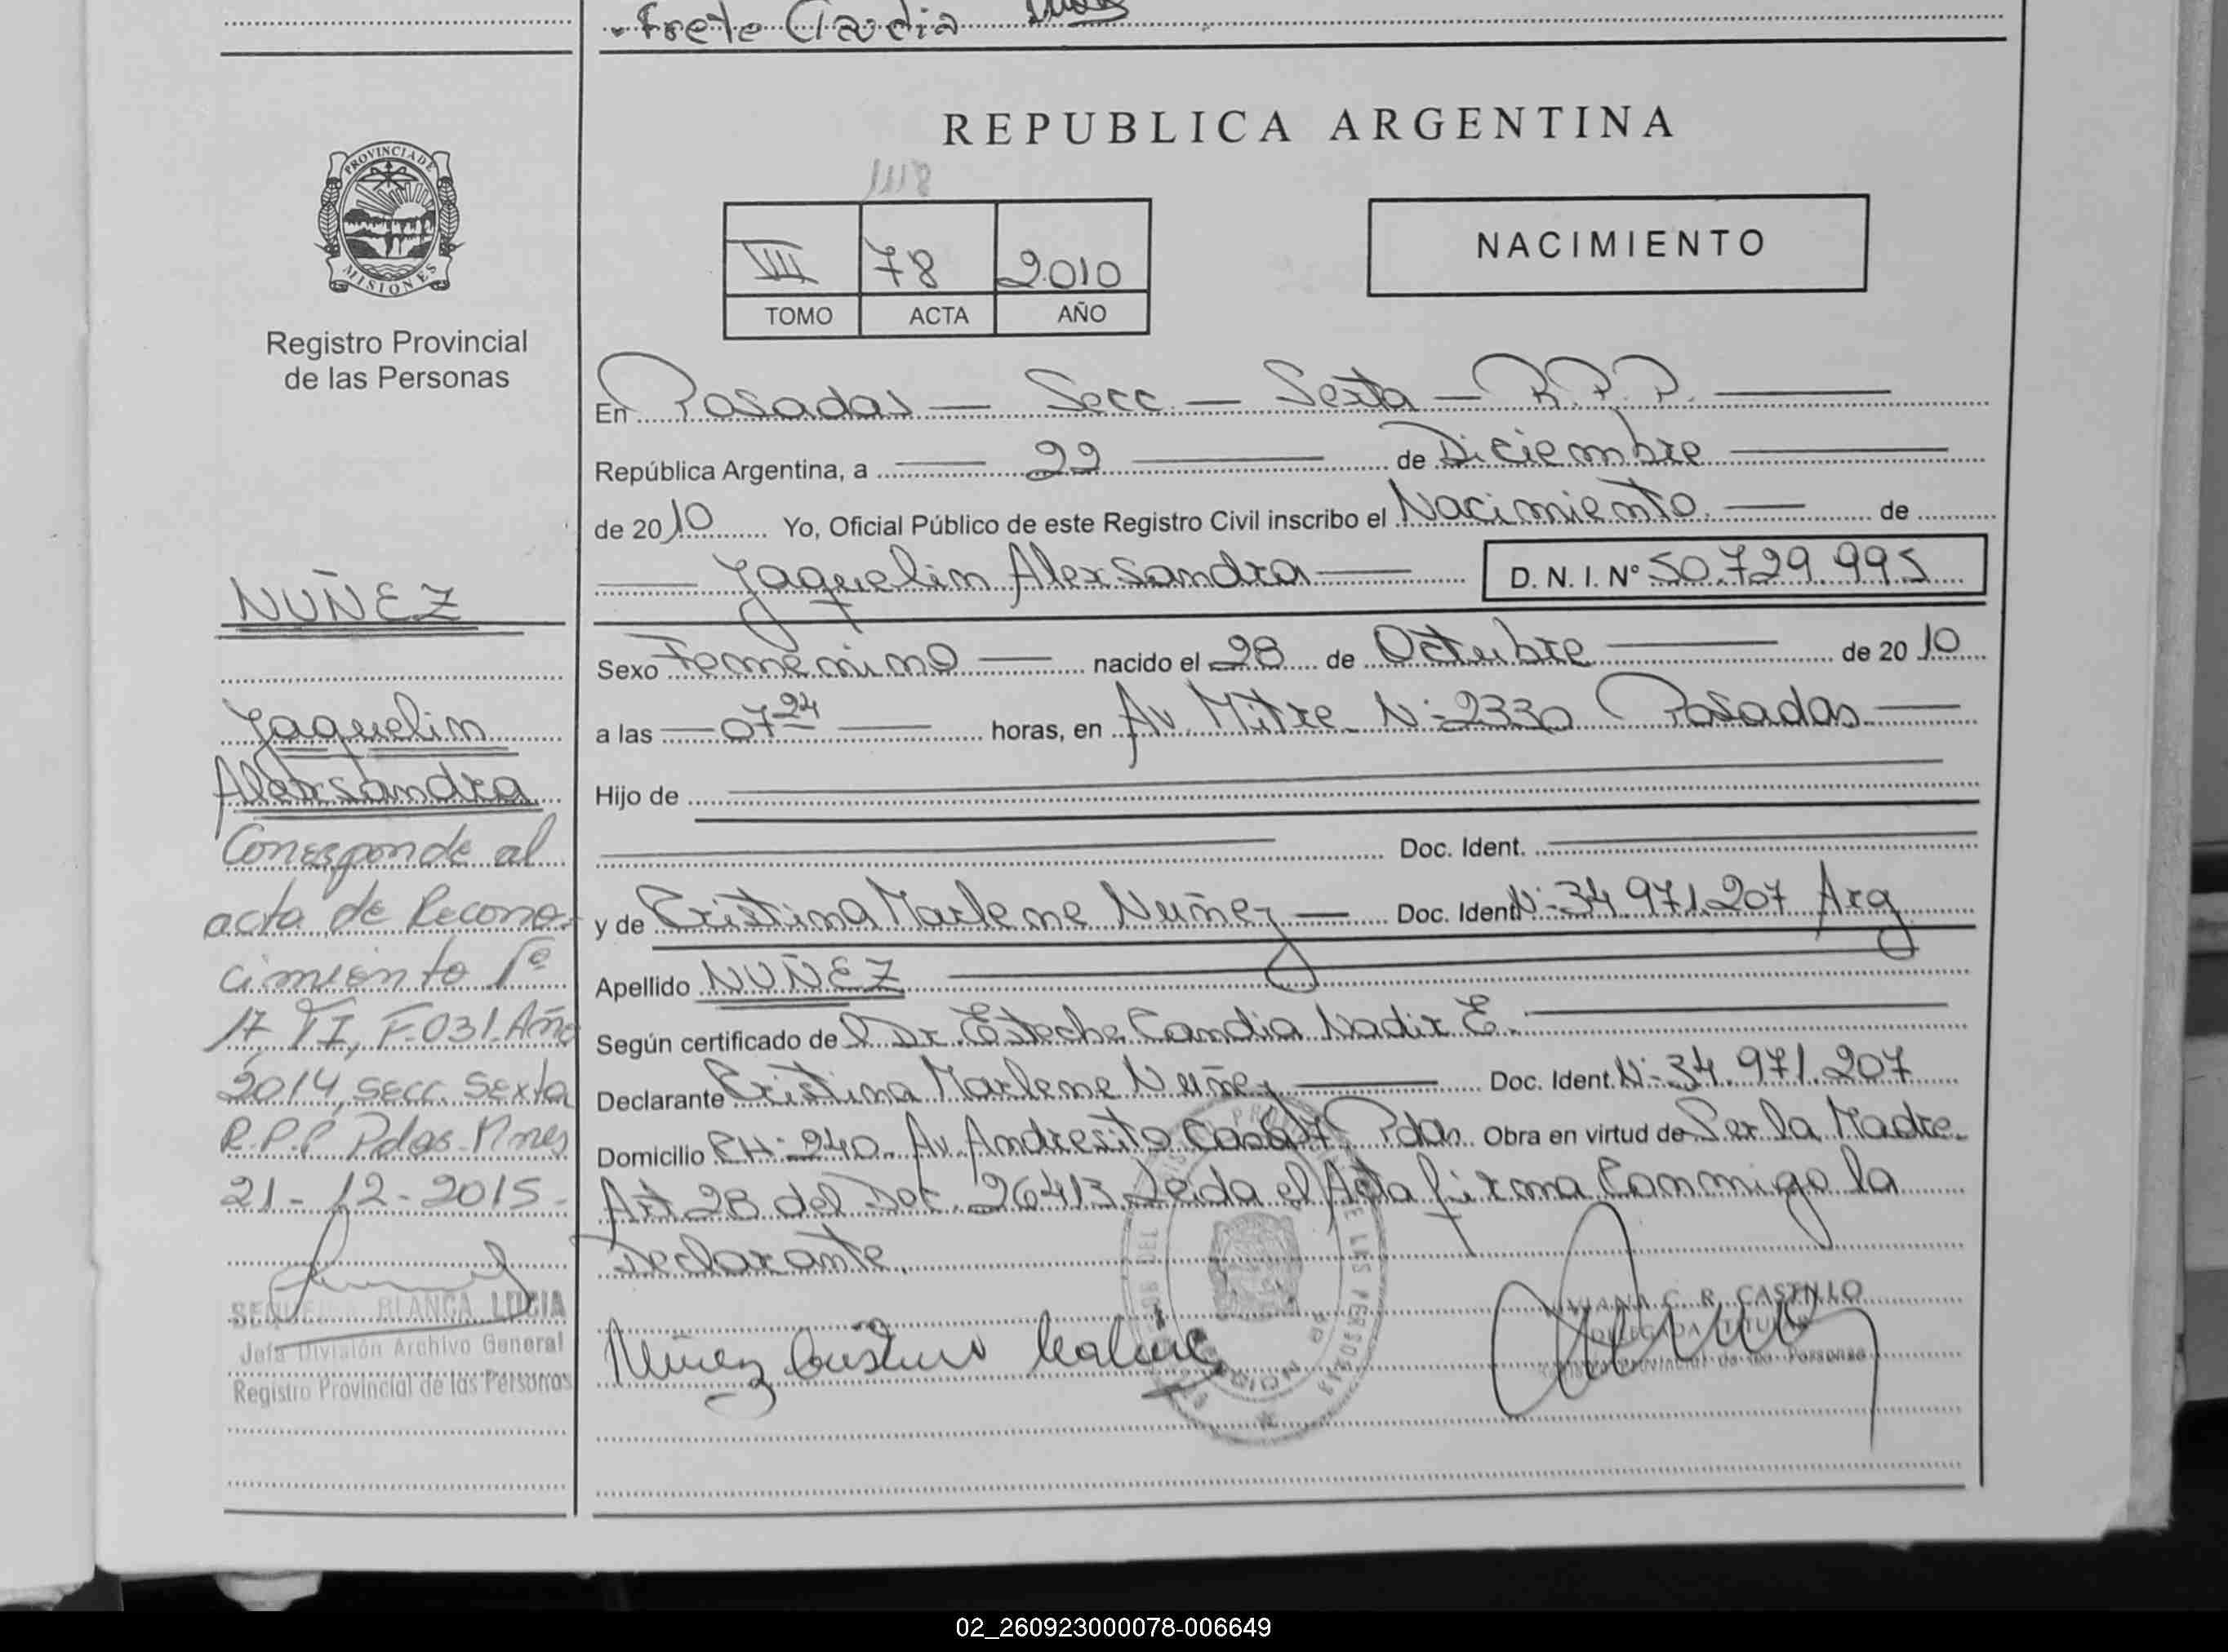 - Frete Claudia
REPUBLICA ARGENTINA
PROVINCIA DE
MISIONES
Registro Provincial
de las Personas
1118
VII 78 2010
TOMO ACTA AÑO
NACIMIENTO
En Posadas — Secc — Sexta — R.P.P. —
República Argentina, a — 22 — de Diciembre —
de 2010 Yo, Oficial Público de este Registro Civil inscribo el Nacimiento — de
— Jaquelin Alexsandra — D. N. I. Nº 50.729.995
Sexo Femenino — nacido el 28 de Octubre — de 2010
a las — 07 24 — horas, en Av. Mitre N: 2330 Posadas —
Hijo de
Doc. Ident.
y de Cristina Marlene Nuñez — Doc. Ident N: 34.971.207 Arg
Apellido NUÑEZ
Según certificado de l Dr. Esteche Candia Nadir E.
Declarante Cristina Marlene Nuñez — Doc. Ident. N: 34.971.207
Domicilio CH: 240. Av. Andresito Pdas. Obra en virtud de Ser la Madre.
Art 28 del Dec. 26413 Leida el Acta firma Conmigo la
Declarante.
NUÑEZ
Jaquelin
Alexsandra
Corresponde al
acta de Recono-
cimiento Nº
17 TI, F.031. Año
2014, secc. Sexta
R.P.P. Pdas. Mnes
21-12-2015-
BLANCA LUCIA
Jefa División Archivo General
Registro Provincial de las Personas
Nuñez Cristina Marlene
VIVIANA C. R. CASTILLO
DELEGADA TITULAR
Registro Provincial de las Personas
02_260923000078-006649